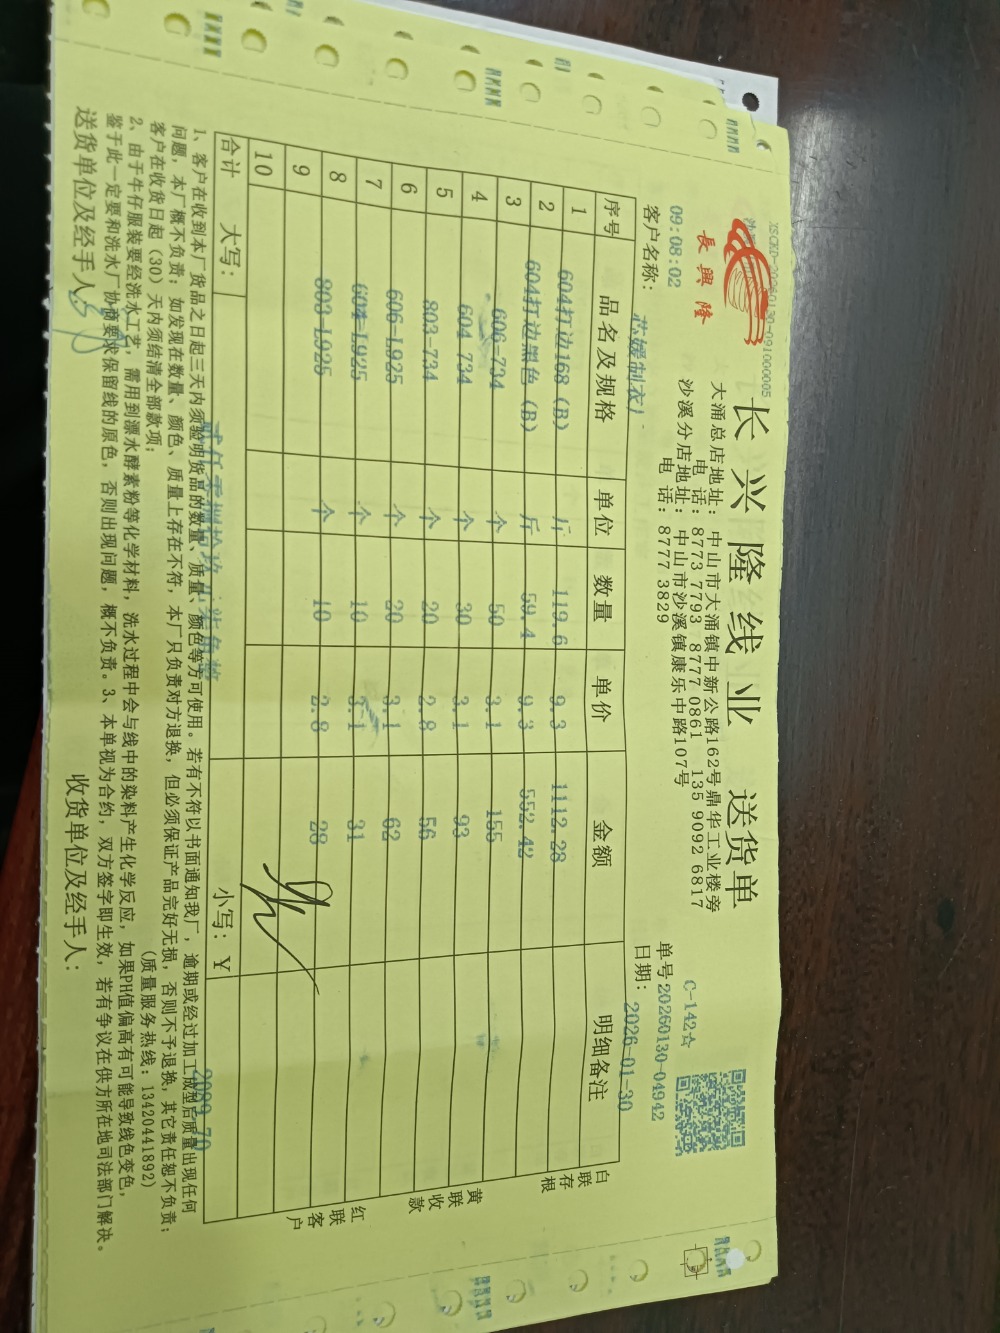 長興隆
长兴隆线业 送货单
大涌总店地址：中山市大涌镇中新公路162号鼎华工业楼旁
电话：8773 7793 8777 0861 135 9092 6817
沙溪分店地址：中山市沙溪镇康乐中路107号
电话：8777 3829
C-142☆
09:08:02
单号20260130-04942
客户名称：芯媛制衣厂
日期：2026-01-30
序号 品名及规格 单位 数量 单价 金额 明细备注
1 604打边168（B） 斤 119.6 9.3 1112.28
2 604打边黑色（B） 斤 59.4 9.3 552.42
3 606-734 个 50 3.1 155
4 604-734 个 30 3.1 93
5 803-734 个 20 2.8 56
6 606-L925 个 20 3.1 62
7 604-L925 个 10 3.1 31
8 803-L925 个 10 2.8 28
9
10
合计 大写： 小写：Y 2089.70
白联存根
黄联收款
红联客户
1、客户在收到本厂货品之日起三天内须验明货品的数量、质量、颜色等方可使用。若有不符以书面通知我厂，逾期或经过加工成型后质量出现任何
问题，本厂概不负责；如发现在数量、颜色、质量上存在不符，本厂只负责对方退换，但必须保证产品完好无损，否则不予退换，其它责任恕不负责；
客户在收货日起（30）天内须结清全部款项；
（质量服务热线：13420441892）
2、由于牛仔服装要经洗水工艺，需用到漂水酵素粉等化学材料，洗水过程中会与线中的染料产生化学反应，如果PH值偏高有可能导致线色变色，
鉴于此一定要和洗水厂协商要求保留线的原色，否则出现问题，概不负责。3、本单视为合约，双方签字即生效，若有争议在供方所在地司法部门解决。
送货单位及经手人：
收货单位及经手人：